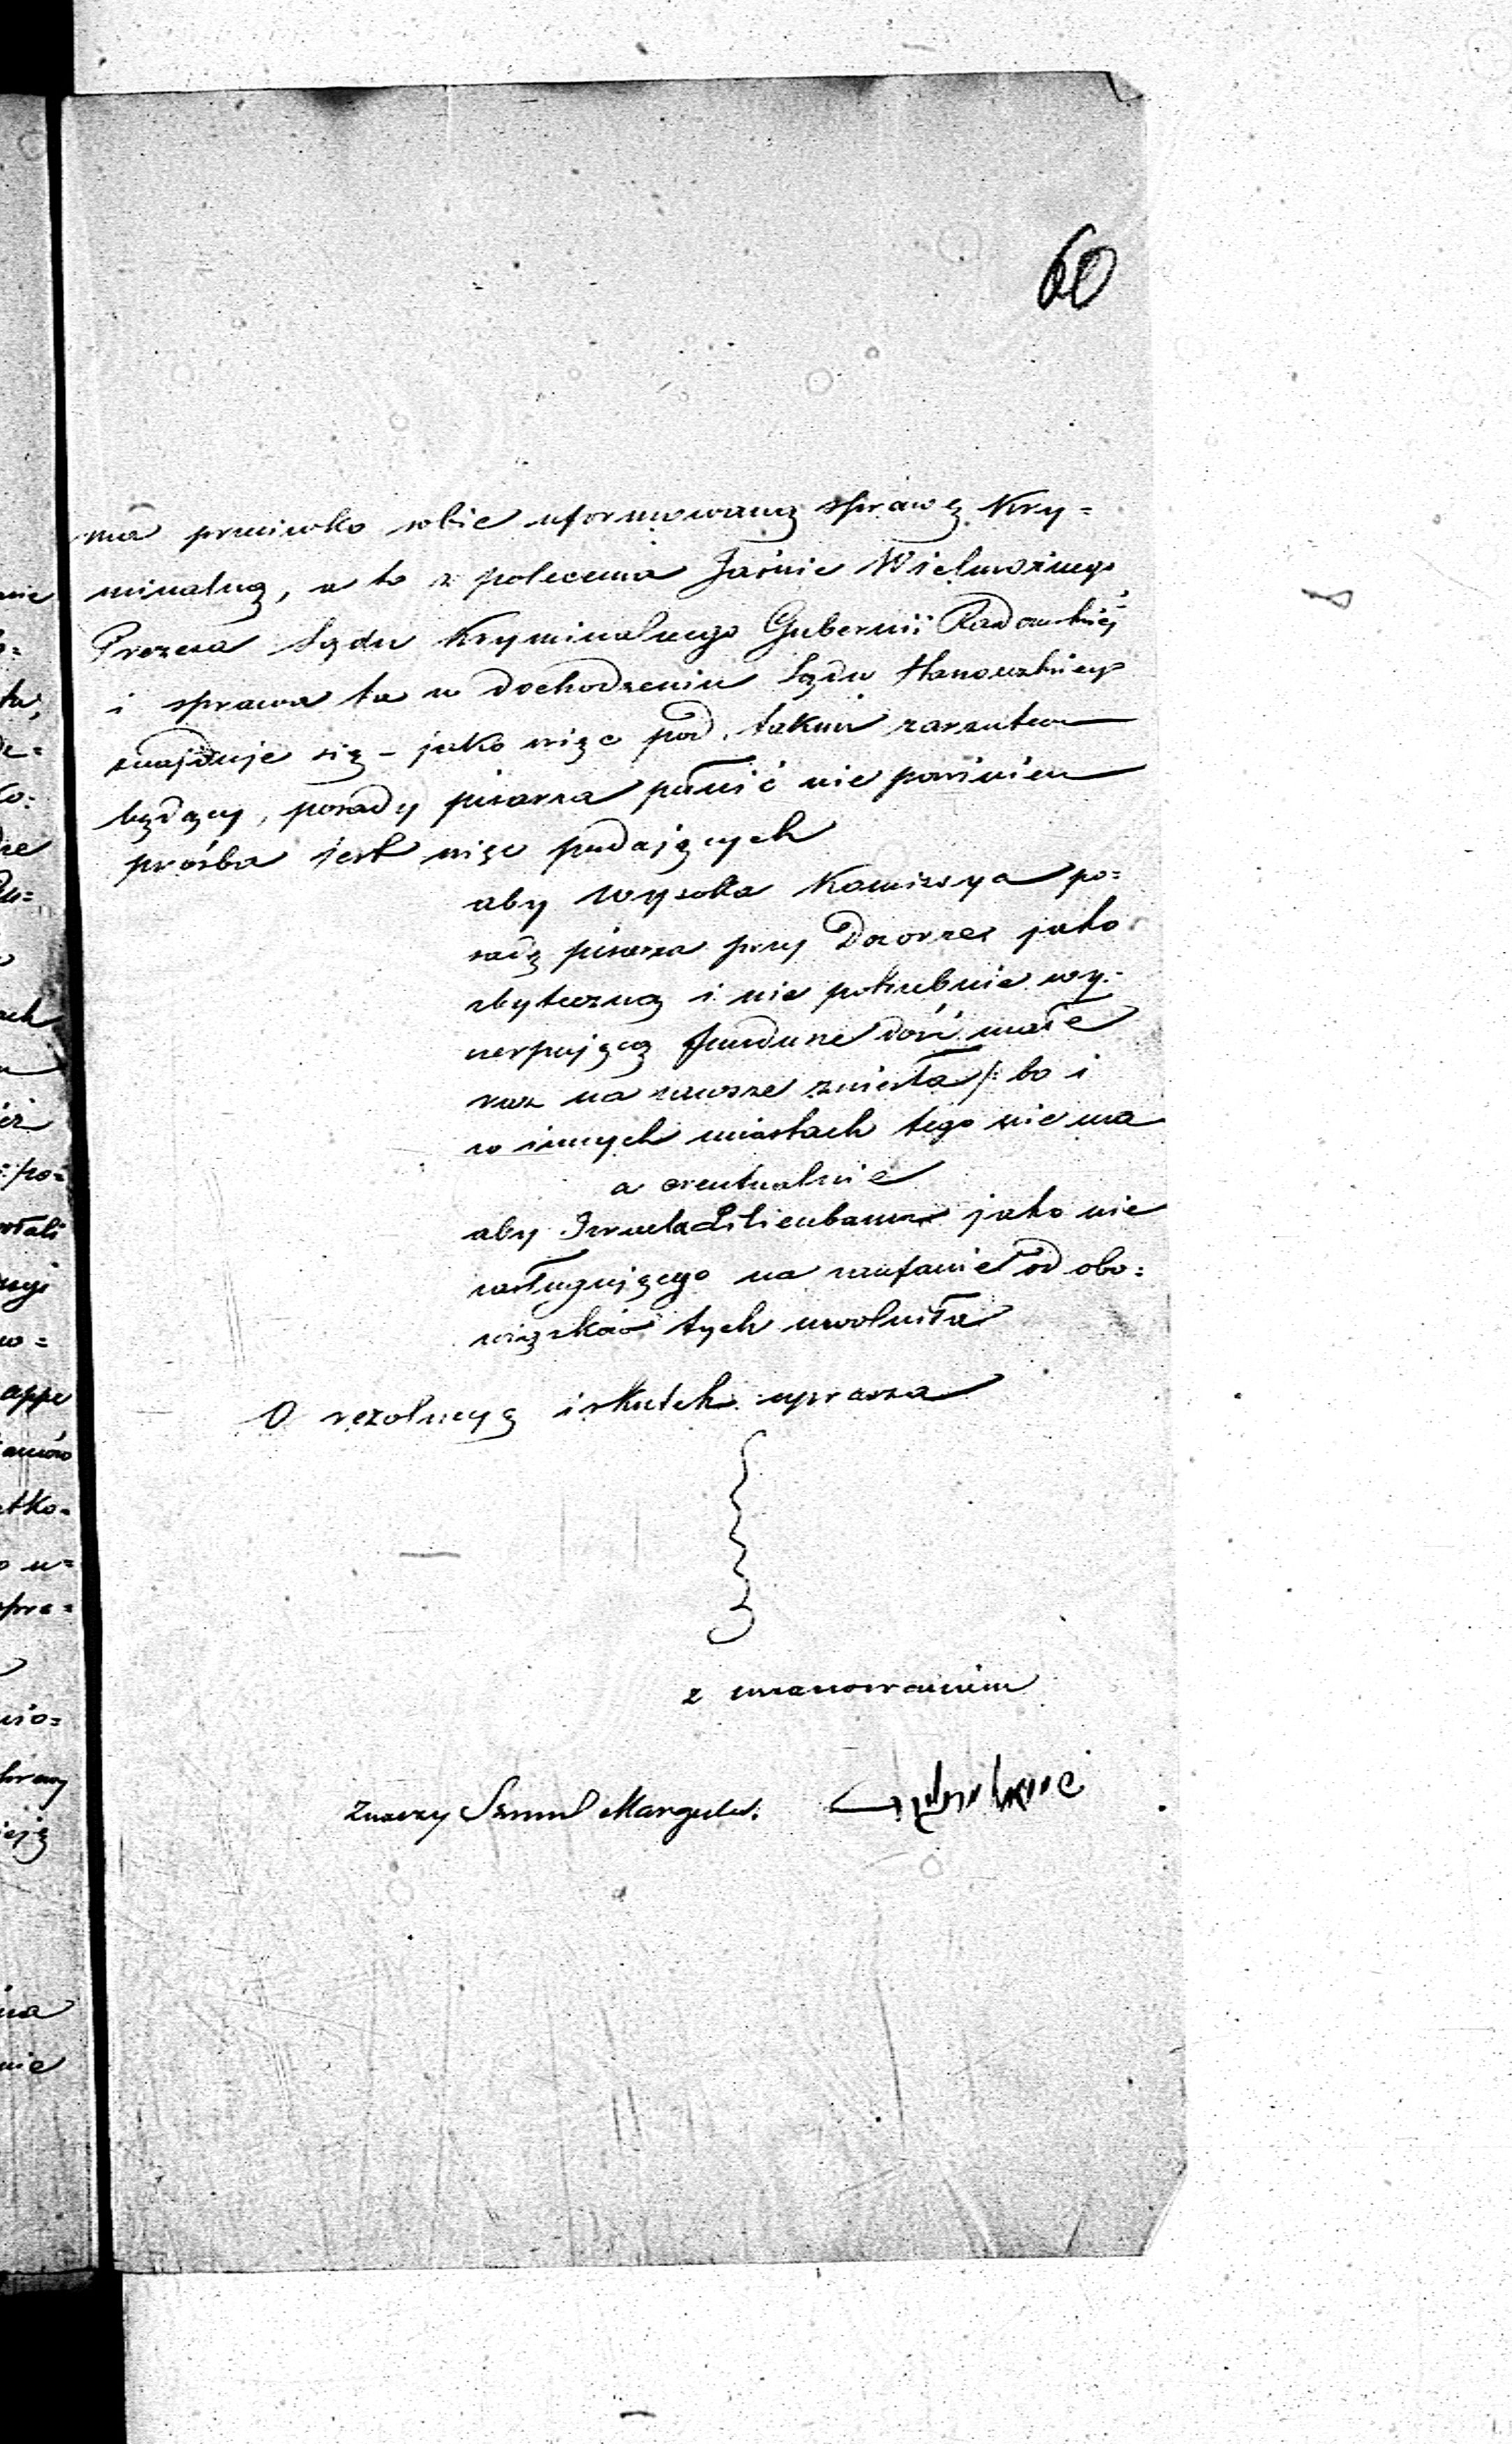 60
ma przeciwko sobie uformowaną sprawę Kry=
minalną, a to z polecenia Jaśnie Wielmożnego
Prezesa Sądu Kryminalnego Gubernii Radomskiéj
i sprawa ta w dochodzeniu Sądu
znajduje się – jako więc pod takim zarzutem
będący, posady pisarza pełnić nie powinien
prośba jest więc podających
aby Wysoka Komissya po=
sadę pisarza przy Dozorze jako
zbyteczną i nie potrzebnie wy=
czerpującą fundusze dość małe
raz na zawsze zniosła /: bo i
w innych miastach tego nie ma
a eventualnie
aby Izraela Lilienbauma jako nie
zasługującego na zaufanie od obo=
wiązków tych uwolniła
O rezolucyę i skutek uprasza
z uszanowaniem
Znaczy Szmul Margules.
nie
ach
po=
stali
appe
etko=
u=
spra=
nie